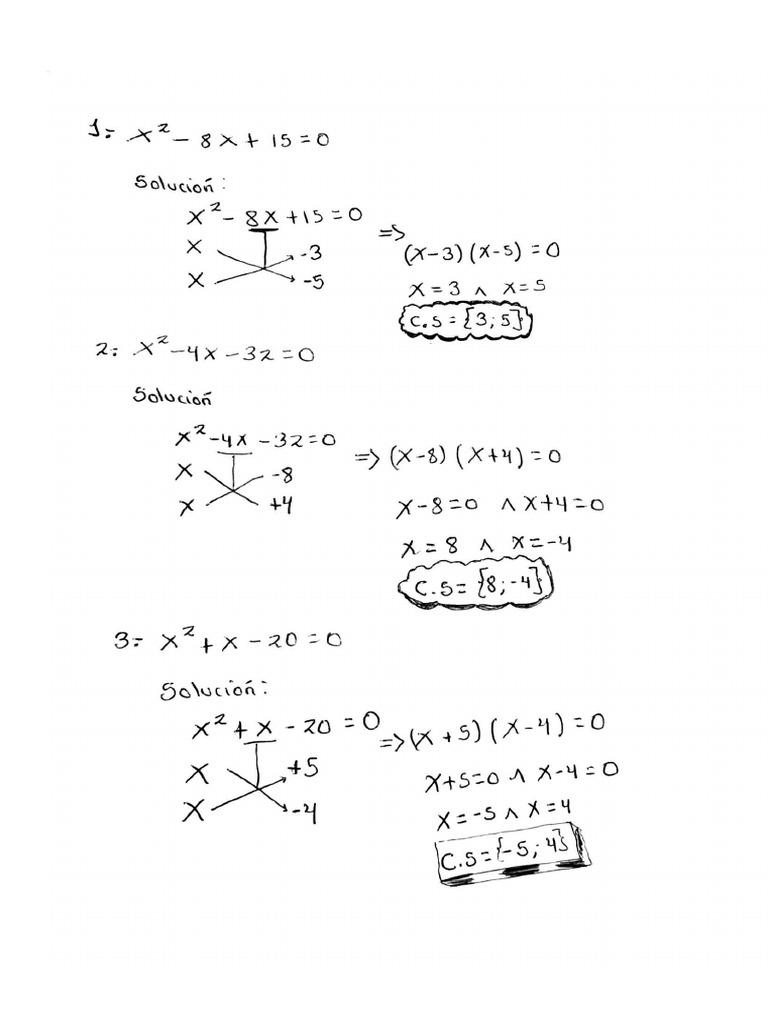 1.- x² - 8x + 15 = 0
Solución:
x² - 8x + 15 = 0
x -3
x -5
=> (x-3) (x-5) = 0
x = 3 ∧ x = 5
C.S = {3; 5}
2.- x² - 4x - 32 = 0
Solución
x² - 4x - 32 = 0
x -8
x +4
=> (x-8) (x+4) = 0
x-8=0 ∧ x+4=0
x = 8 ∧ x = -4
C.S = {8; -4}
3.- x² + x - 20 = 0
Solución:
x² + x - 20 = 0
x +5
x -4
=> (x + 5) (x - 4) = 0
x+5=0 ∧ x-4=0
x = -5 ∧ x = 4
C.S = {-5; 4}